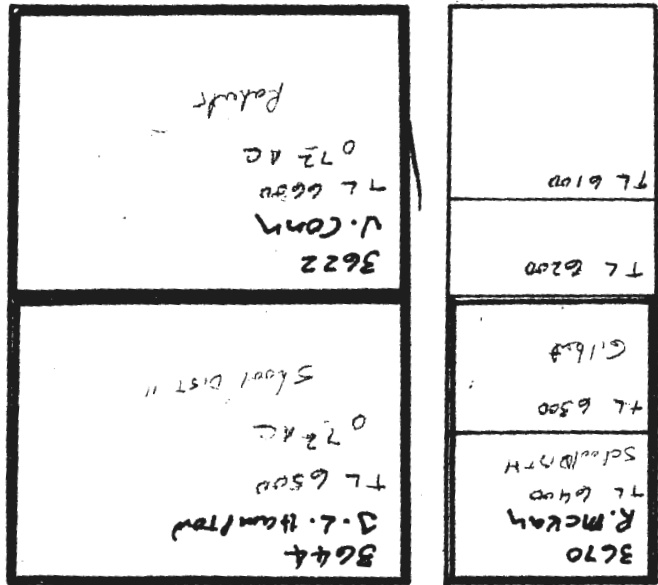 3670
R. McKay
TL 6400
School Dist H
TL 6300
Gilbert
TL 6200
TL 6100
3644
J. L. Hampton
TL 6500
0 72 AC
School Dist "
3622
J. Conn
TL 6600
0 72 AC